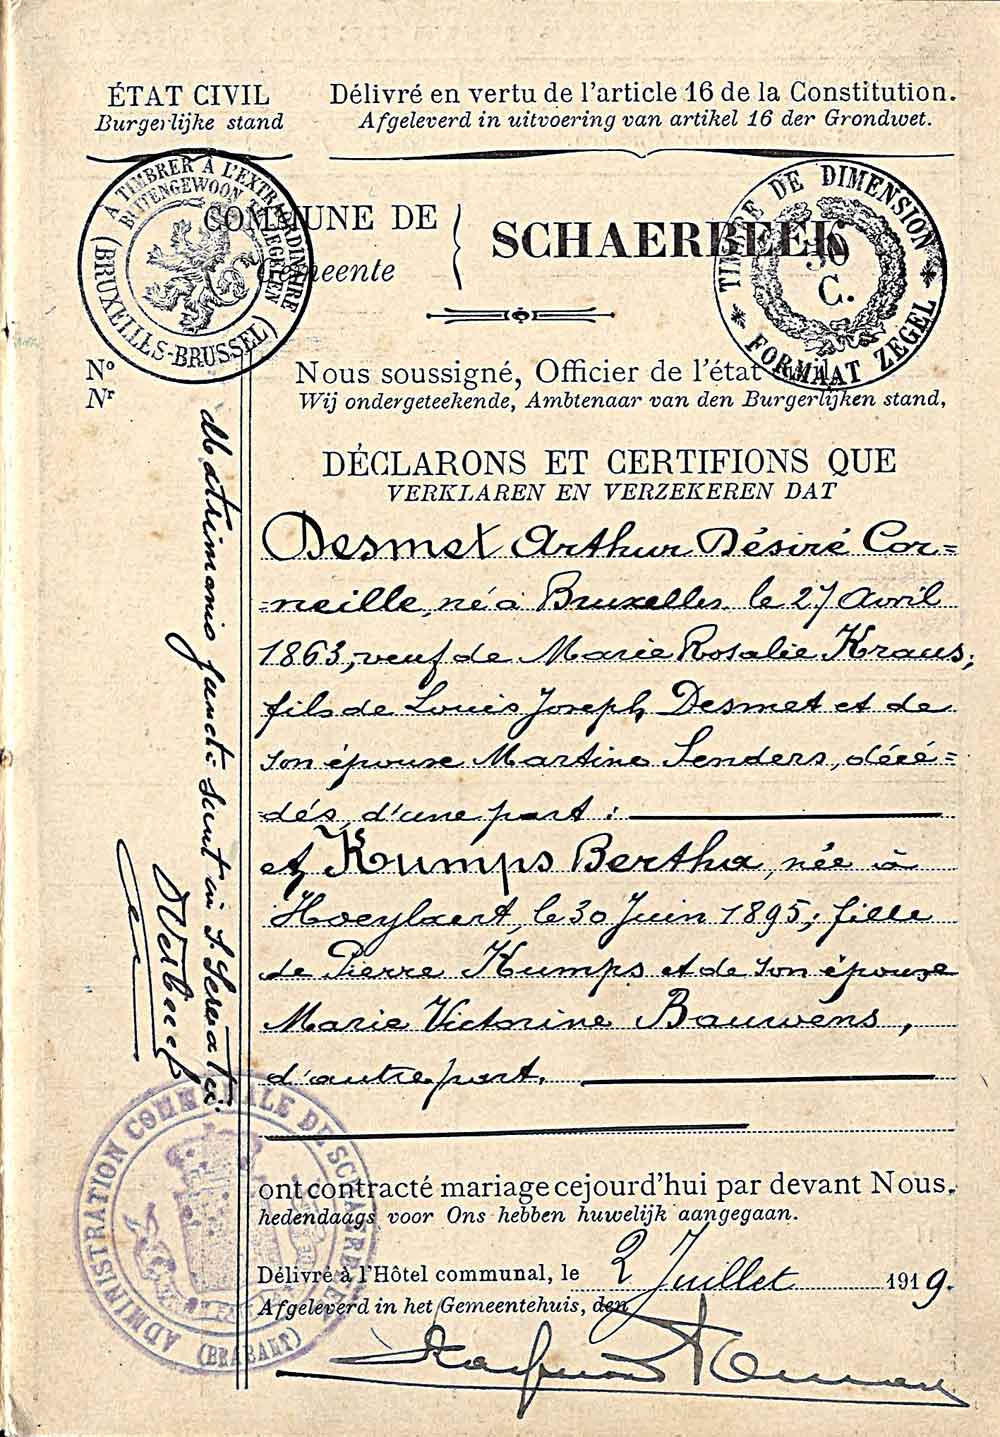 ÉTAT CIVIL
Burgerlijke stand
Délivré en vertu de l'article 16 de la Constitution.
Afgeleverd in uitvoering van artikel 16 der Grondwet.
À TIMBRER À L'EXTRAORDINAIRE
BUITENGEWOON TE ZEGELEN
(BRUXELLES-BRUSSEL)
COMMUNE DE
Gemeente
SCHAERBEEK
TIMBRE DE DIMENSION
C.
FORMAAT ZEGEL
Nº
Nr
Nous soussigné, Officier de l'état civil,
Wij ondergeteekende, Ambtenaar van den Burgerlijken stand,
DÉCLARONS ET CERTIFIONS QUE
VERKLAREN EN VERZEKEREN DAT
Desmet Arthur Désiré Cor=
=neille, né à Bruxelles, le 27 Avril
1863, veuf de Marie Rosalie Kraus,
fils de Louis Joseph Desmet et de
son épouse Martine Senders, décé=
dés, d'une part :
et Kumps Bertha, née à
Hoeylaert, le 30 Juin 1895, fille
de Pierre Kumps et de son épouse
Marie Victorine Bauwens,
d'autre part.
ont contracté mariage cejourd'hui par devant Nous.
hedendaags voor Ons hebben huwelijk aangegaan.
Délivré à l'Hôtel communal, le 2 Juillet 1919.
Afgeleverd in het Gemeentehuis, den
Matrimonio juncti sunt in S. Servatii.
ADMINISTRATION COMMUNALE DE SCHAERBEEK
(BRABANT)